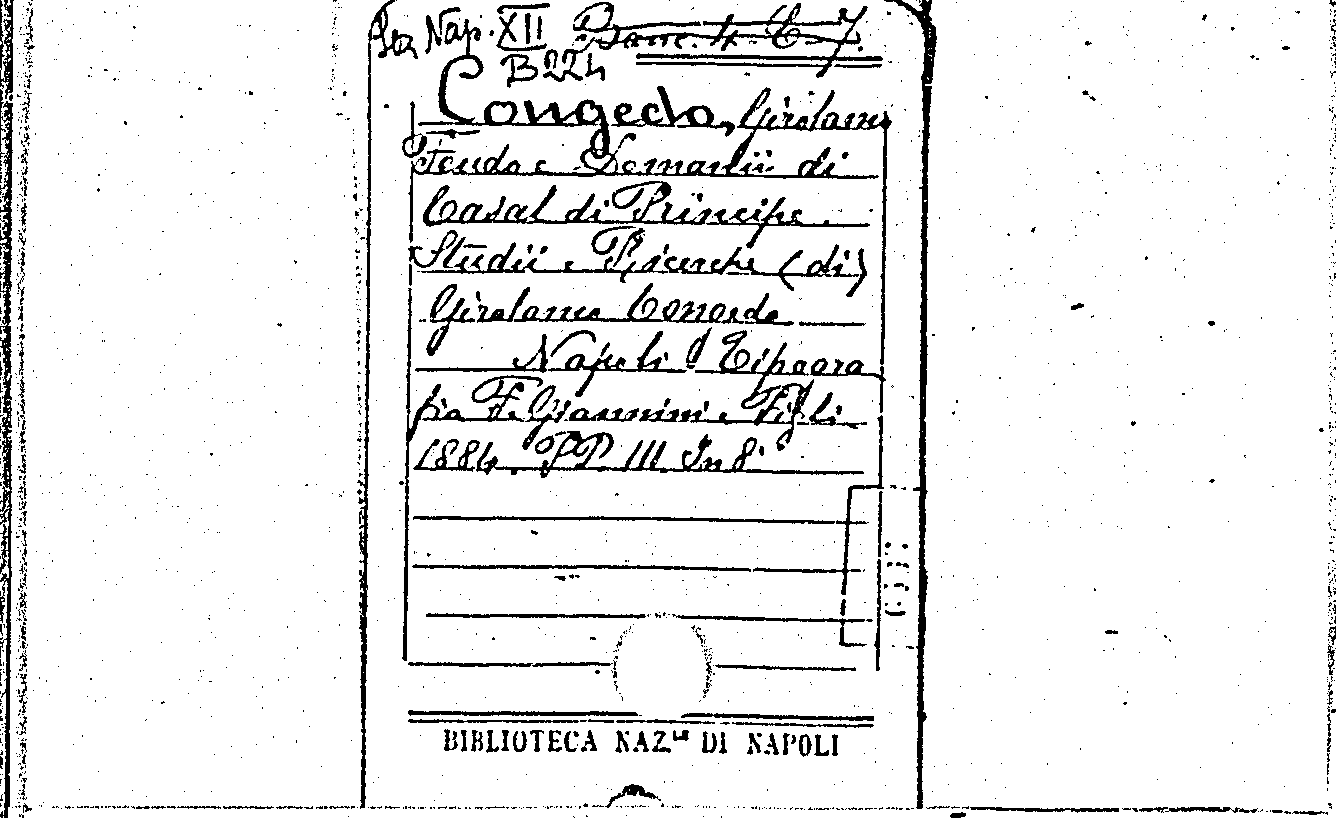 Sez Nap. XII Banc. 4. C 7.
B 224
Congedo, Girolamo
Feudo e Demanii di
Casal di Principe.
Studii e Ricerche (di)
Girolamo Congedo
Napoli Tipogra
fia F. Giannini e Figli
1884. PP. 111. In 8°
BIBLIOTECA NAZ.LE DI NAPOLI